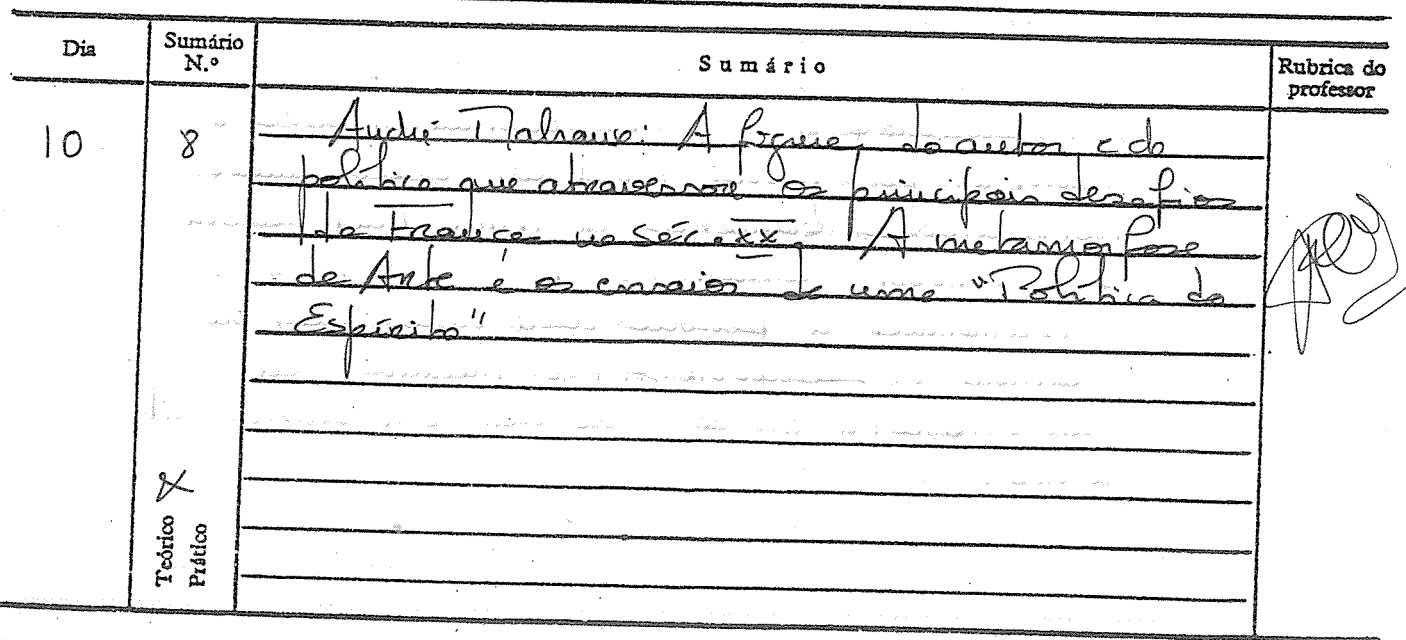 Dia
Sumário N.º
Sumário
Rubrica do professor
10
8
André Malraux: A figura do autor e do
político que atravessou os principais desafios
da França no séc. XX. A metamorfose
da Arte e os ensaios de uma "Política do
Espírito"
X
Teórico
Prático